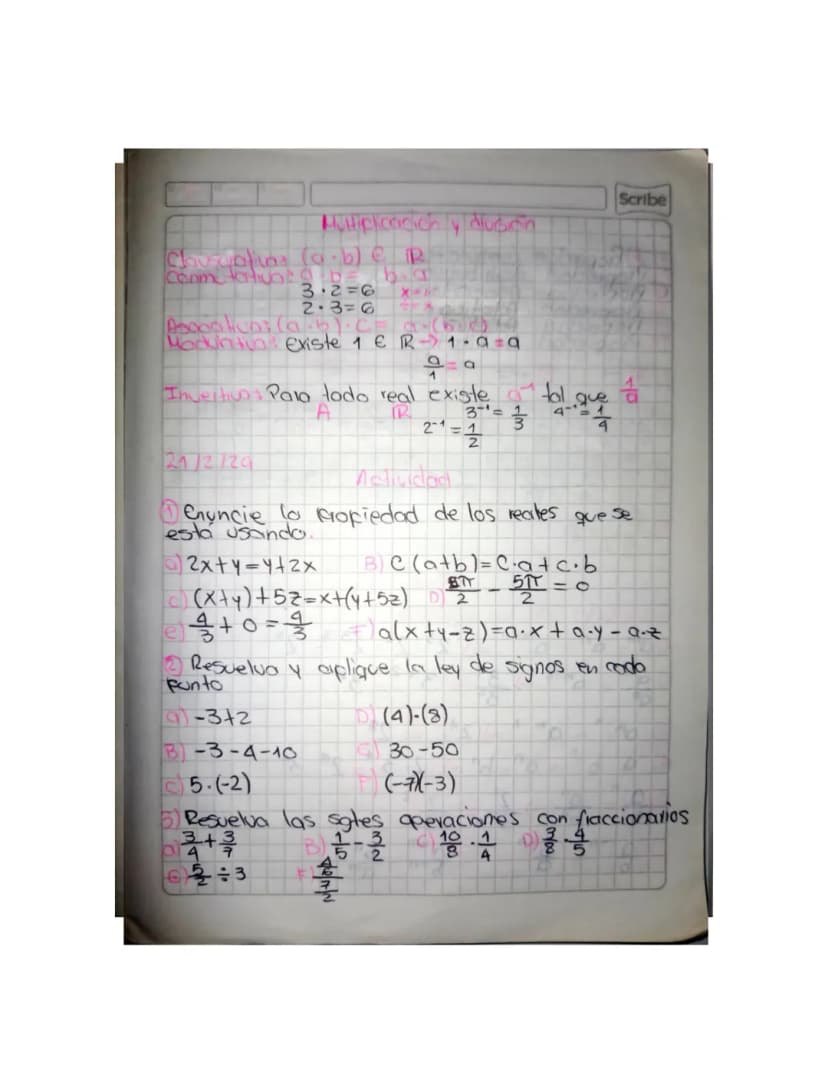 Scribe
Multiplicación y división
Clausurativa: (a·b) ∈ ℝ
Conmutativa: a·b = b·a
3·2=6
2·3=6
Asociativa: (a·b)·c = a·(b·c)
Modulativa: Existe 1 ∈ ℝ → 1·a=a
a/1 = a
Invertiva: Para todo real existe a⁻¹ tal que 1/a
A ℝ 3⁻¹=1/3 4⁻¹=1/4
2⁻¹=1/2
21/2/24
Actividad
① Enuncie la propiedad de los reales que se
está usando.
a) 2x+y=y+2x B) C(a+b)=C·a+c·b
c) (x+y)+5z=x+(y+5z) D) 5π/2 - 5π/2 = 0
e) 4/3 + 0 = 4/3 F) a(x+y-z)=a·x+a·y-a·z
② Resuelva y aplique la ley de signos en cada
punto
a) -3+2 D) (4)·(8)
B) -3-4-10 E) 30-50
c) 5·(-2) F) (-7)(-3)
3) Resuelva las sgtes operaciones con fraccionarios
a) 3/4+3/7 B) 1/5-3/2 C) 10/8·1/4 D) 3/8·4/5
e) 5/2÷3